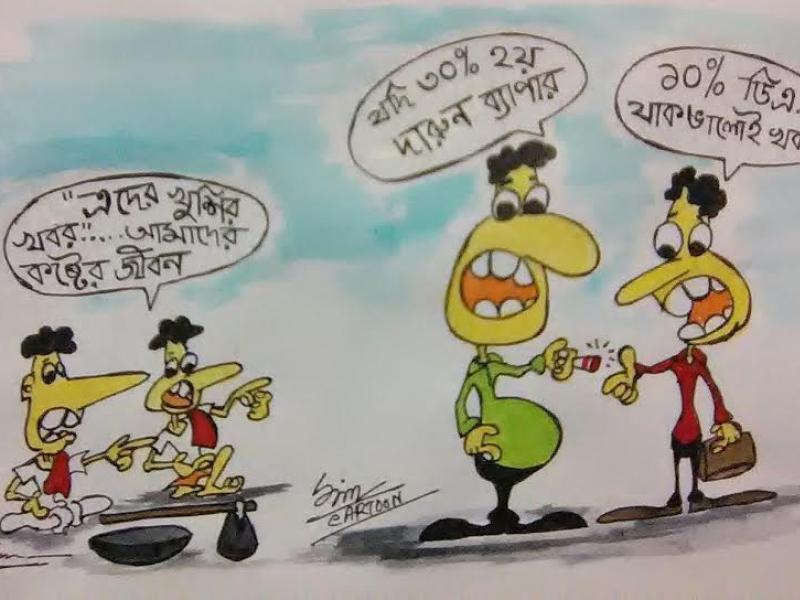 "এদের খুশির
খবর"..... আমাদের
কষ্টের জীবন
যদি ৩০% হয়
দারুন ব্যাপার
১০% ডি.এ.
যাক ভালোই খব
CARTOON